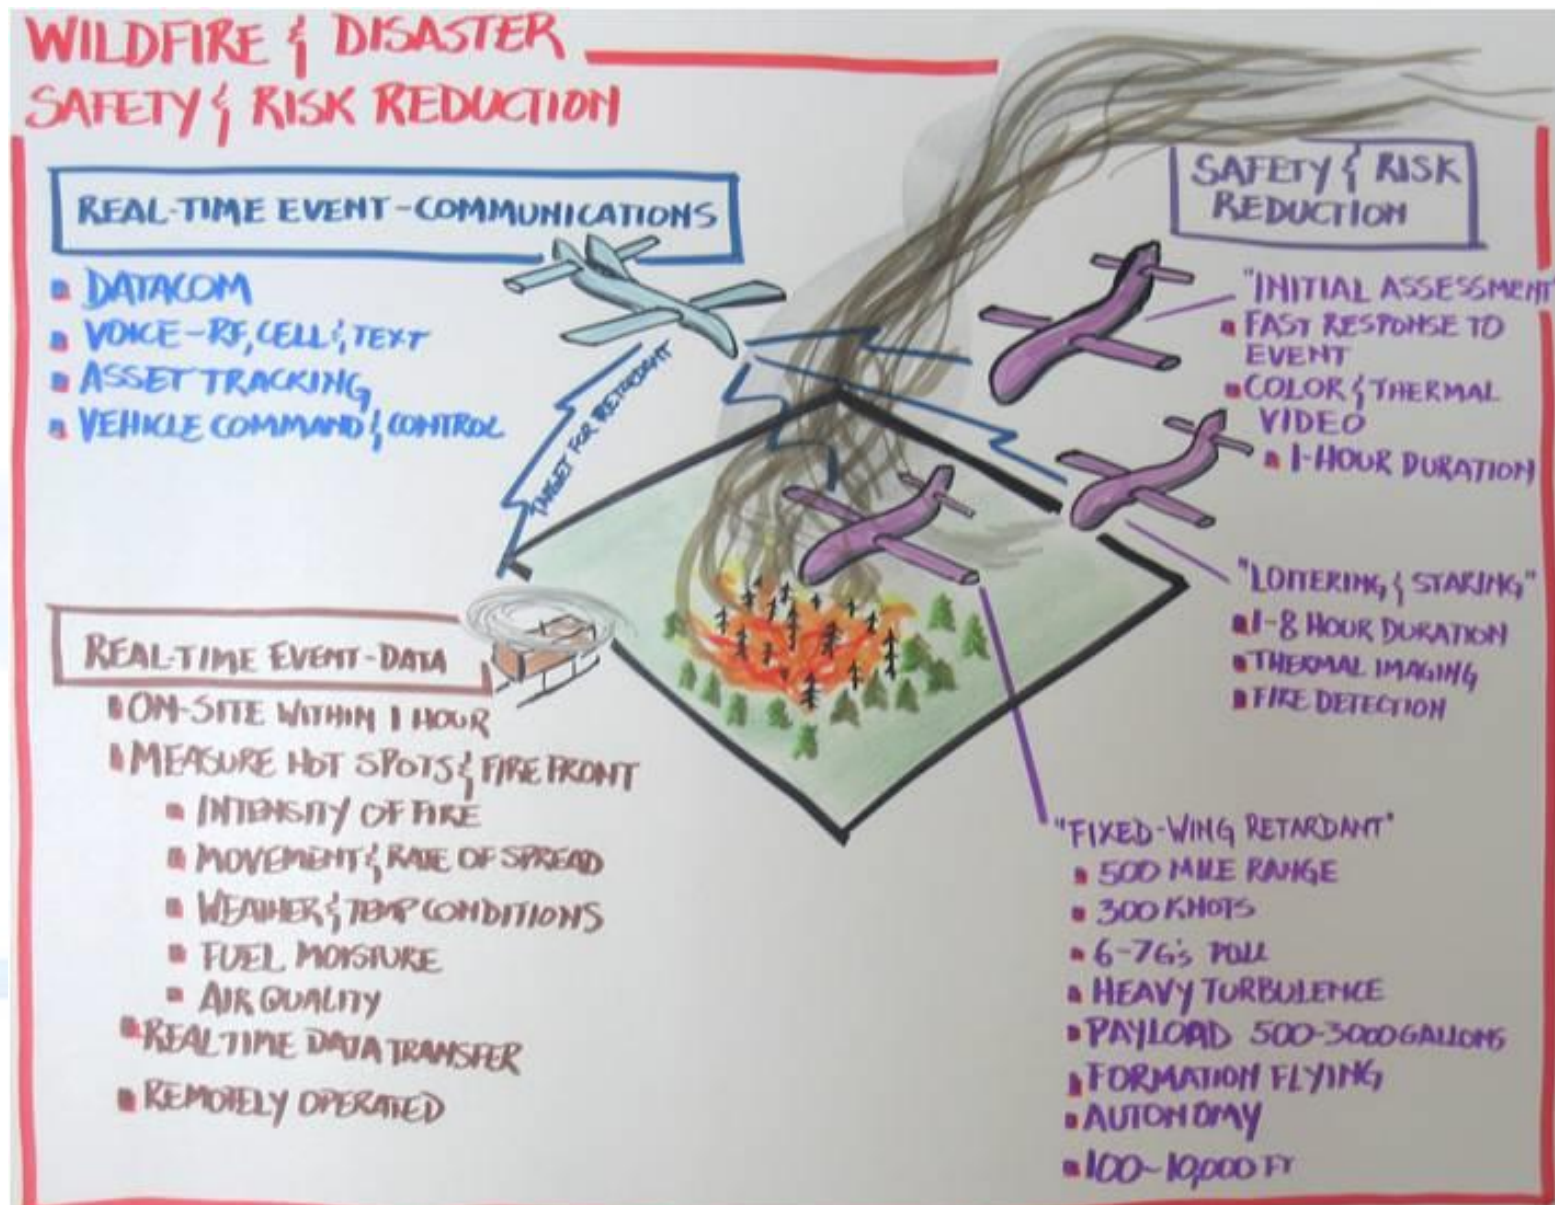 WILDFIRE & DISASTER
SAFETY & RISK REDUCTION
REAL-TIME EVENT-COMMUNICATIONS
DATACOM
VOICE-RF, CELL & TEXT
ASSET TRACKING
VEHICLE COMMAND & CONTROL
TARGET FOR RETARDENT
REAL-TIME EVENT-DATA
ON-SITE WITHIN 1 HOUR
MEASURE HOT SPOTS & FIRE FRONT
INTENSITY OF FIRE
MOVEMENT & RATE OF SPREAD
WEATHER & TEMP CONDITIONS
FUEL MOISTURE
AIR QUALITY
REALTIME DATA TRANSFER
REMOTELY OPERATED
SAFETY & RISK
REDUCTION
"INITIAL ASSESSMENT"
FAST RESPONSE TO
EVENT
COLOR & THERMAL
VIDEO
1-HOUR DURATION
"LOITERING & STARING"
1-8 HOUR DURATION
THERMAL IMAGING
FIRE DETECTION
"FIXED-WING RETARDANT"
500 MILE RANGE
300 KNOTS
6-7G's PULL
HEAVY TURBULENCE
PAYLOAD 500-3000 GALLONS
FORMATION FLYING
AUTONOMY
100~10,000 FT